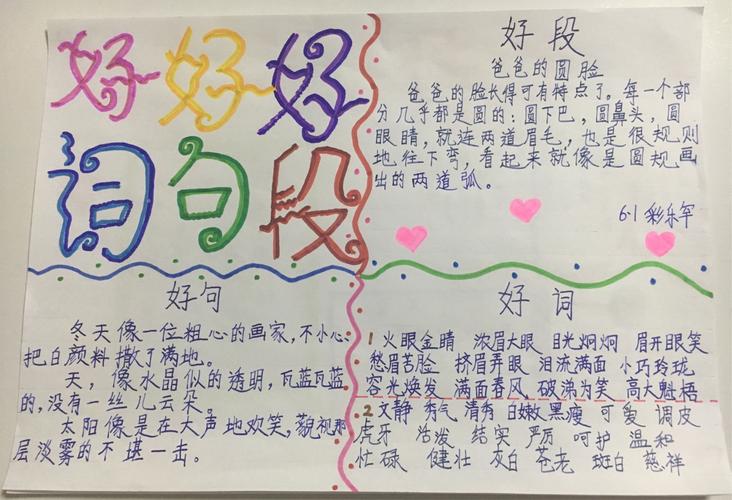 好好好
词句段
好段
爸爸的圆脸
爸爸的脸长得可有特点了。每一个部
分几乎都是圆的：圆下巴，圆鼻头，圆
眼睛，就连两道眉毛，也是很规则
地往下弯，看起来就像是圆规画
出的两道弧。
6.1 彩乐军
好句
冬天像一位粗心的画家，不小心
把白颜料撒了满地。
天，像水晶似的透明，瓦蓝瓦蓝
的，没有一丝儿云朵。
太阳像是在大声地欢笑，藐视那
层淡雾的不堪一击。
好词
1 火眼金睛 浓眉大眼 目光炯炯 眉开眼笑
愁眉苦脸 挤眉弄眼 泪流满面 小巧玲珑
容光焕发 满面春风 破涕为笑 高大魁梧
2 文静 秀气 清秀 白嫩 黑瘦 可爱 调皮
虎牙 活泼 结实 严厉 呵护 温和
忙碌 健壮 灰白 苍老 斑白 慈祥